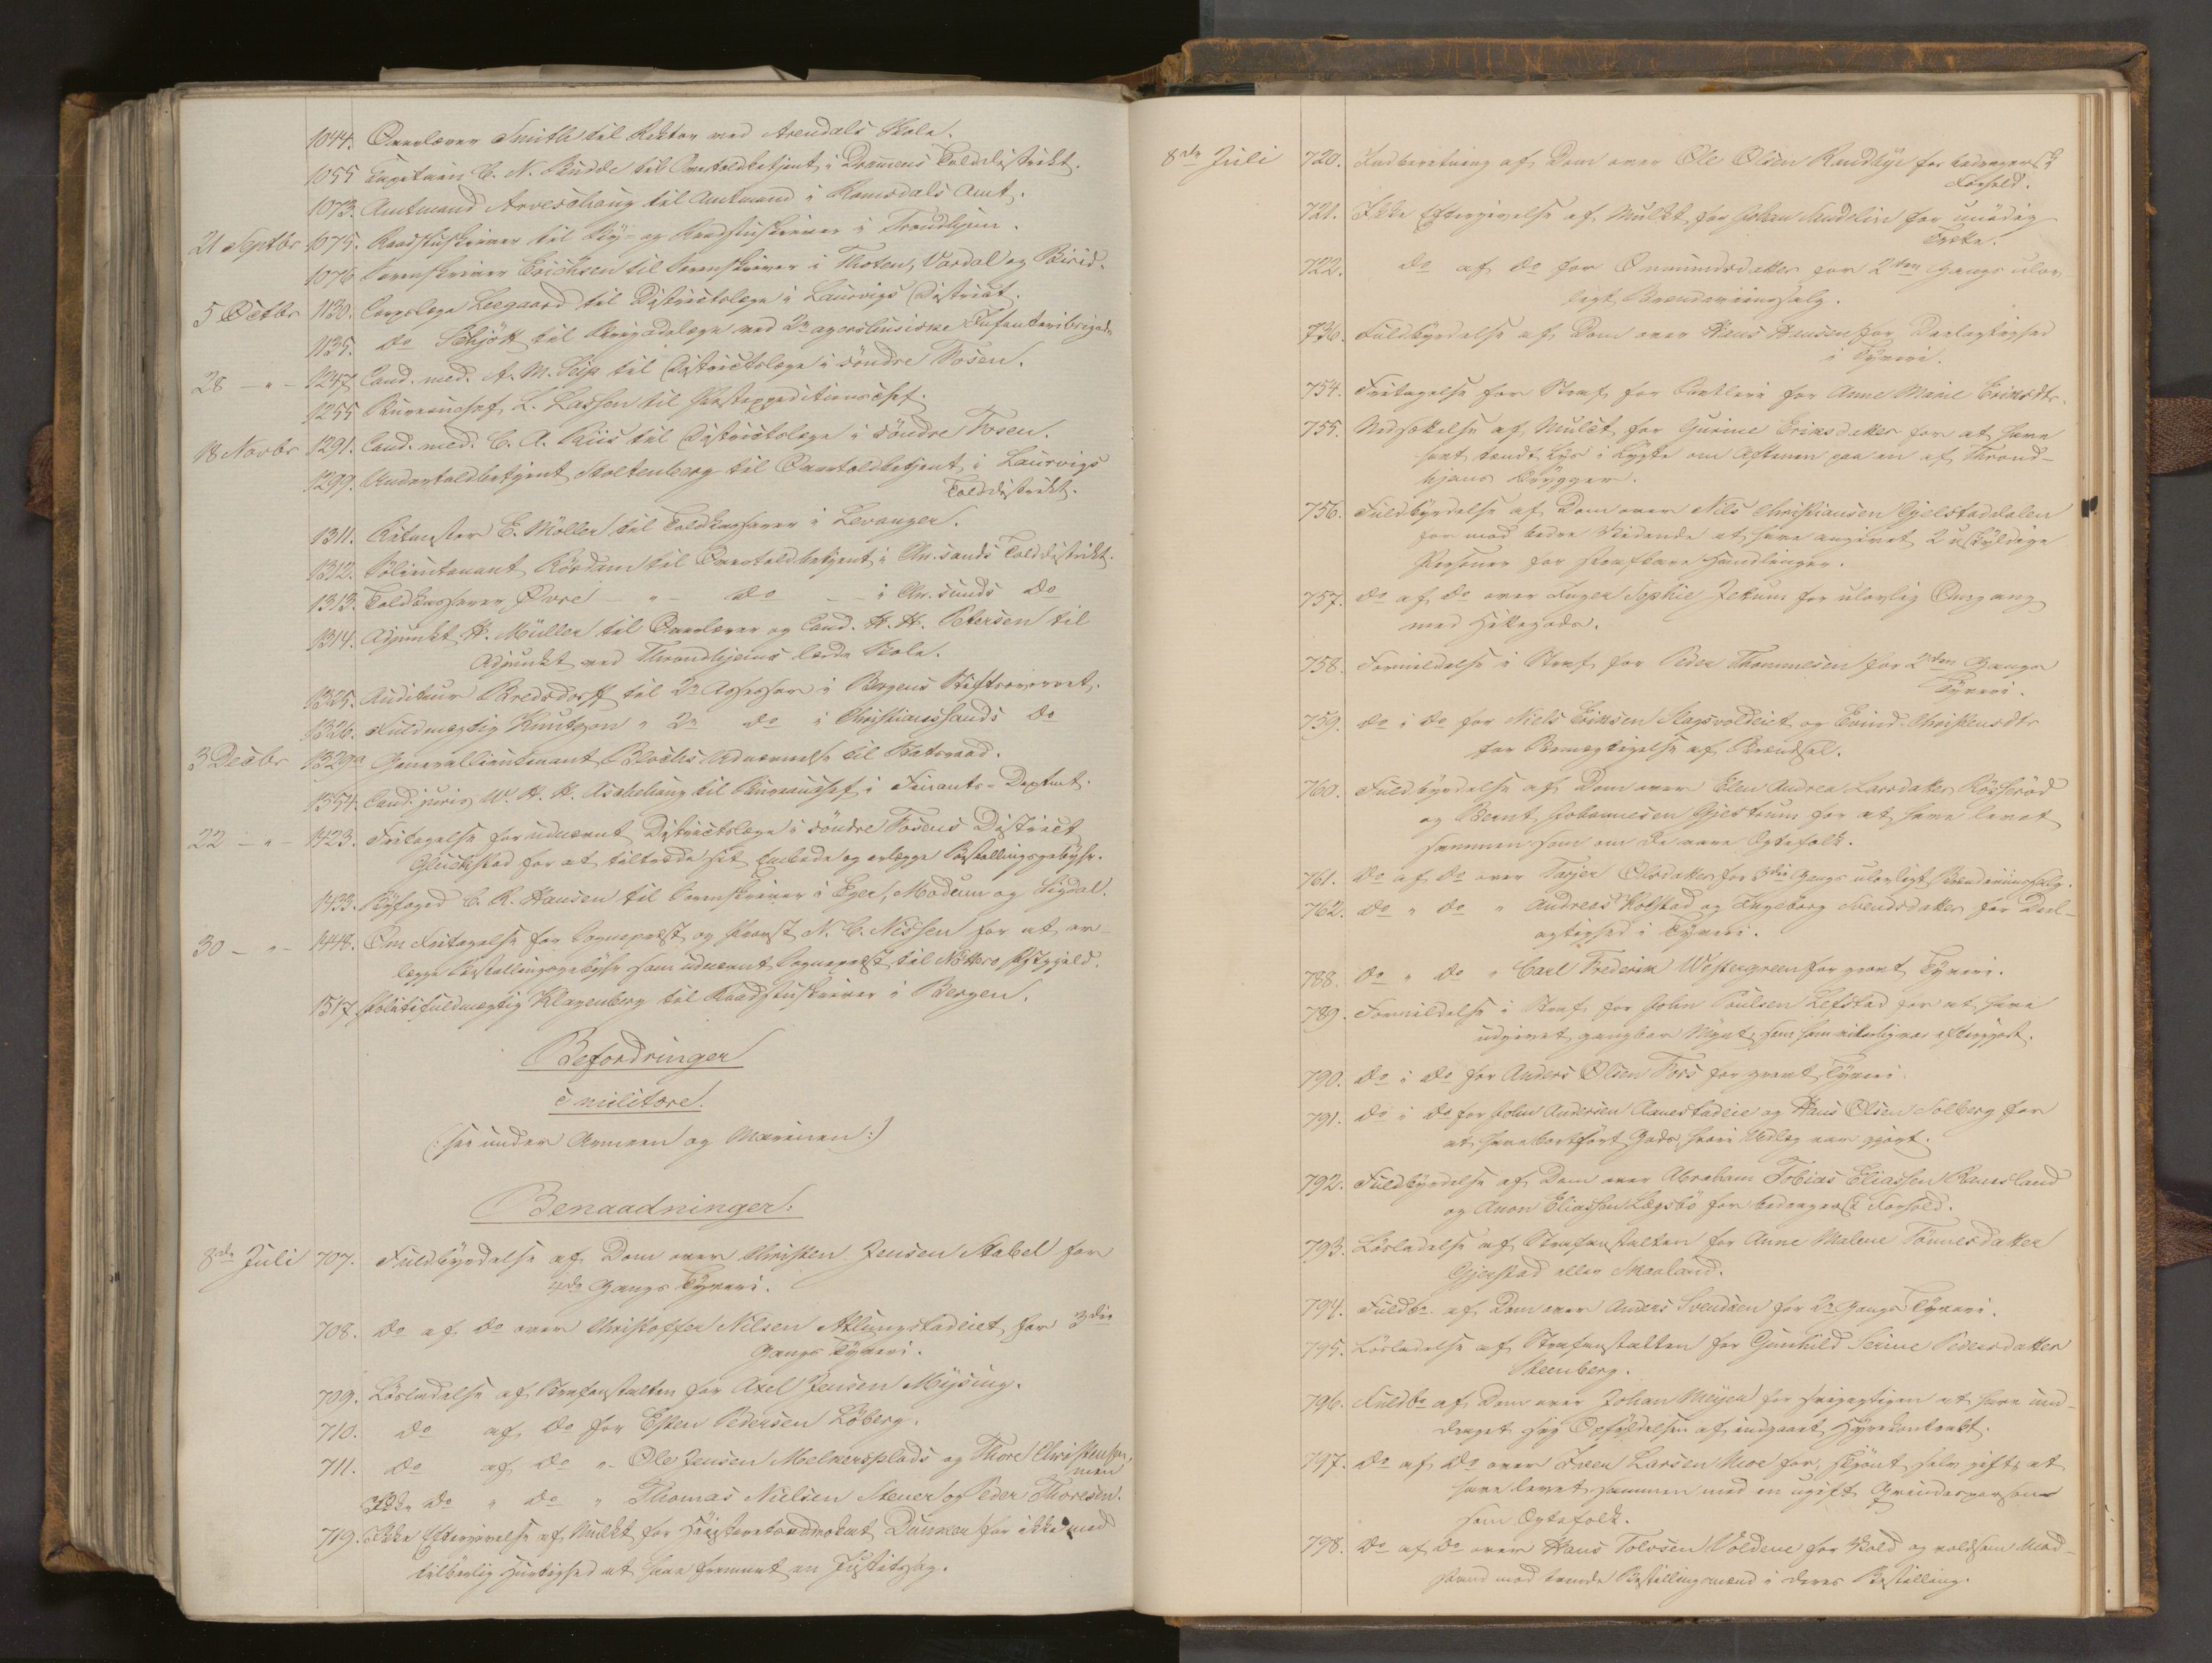 1044. Overlærer Smith til Rektor ved Arendals Skole.
1055 Capitain C. N. Budde til Overtoldbetjent i Drammens Tolddistrikt.
1073. Amtmand Arveschoug til Amtmand i Romsdals Amt.
21 Septbr 1075. Raadstuskriver til By- og Raadstuskriver i Trondhjem.
1076 Sorenskriver Erichsen til Sorenskriver i Thoten, Vardal og Birid.
5 Octbr 1130. Corpslæge Leegaard til Districtslæge i Laurvigs District.
1135. do Schjött til Brigadelæge ved 2n agershusiske Infanteribrigade
28 - " - 1247 Cand. med. A. M. Seip til Districtslæge i söndre Fosen.
1255 Bureauchef L. Lassen til Expeditionschef.
18 Novbr 1291. Cand. med. C. A. Riis til Districtslæge i söndre Fosen.
1299. Undertoldbetjent Stoltenberg til Overtoldbetjent i Laurvigs
Tolddistrikt.
1311. Ritmester E. Möller til Toldkasserer i Levanger.
1312. Pr.lieutenant Rördam til Overtoldbetjent i Chr.sands Tolddistrikt.
1313. Toldkasserer Øvre - " - do - i Chr.sunds do
1314. Adjunkt H. Müller til Overlærer og Cand. H. H. Petersen til
Adjunkt ved Throndhjems lærde Skole.
1325. Auditeur Bredsdorff til 2n Assessor i Bergens Stiftsoverret.
1326. Fuldmægtig Knutzon " 2n do i Christianssands do
3 Decbr 1329a Generallieutenant Blochs Udnævnelse til Statsraad.
1354. Cand. juris W. H. H. Aschehoug til Bureauchef i Finants-Deptmt.
22 - " - 1423. Fritagelse for udnævnt Districtslæge i söndre Fosens District
Glückstad for at tiltræde sit Embede og erlægge Bestallingsgebyhr.
1433. Byfoged C. R. Hansen til Sorenskriver i Eger, Modum og Sigdal.
30 - " - 1448. Om Fritagelse for Sognepræst og Provst N. C. Nissen for at er-
lægge Bestallingsgebyhr som udnævnt Sognepræst til Nötterö Præstegjeld.
1517 Politifuldmægtig Klagenberg til Raadstuskriver i Bergen.
Befordringer
i militære.
(: see under Armeen og Marinen :)
Benaadninger.
8de Juli 707. Fuldbyrdelse af Dom over Christen Jensen Stabel for
4de Gangs Tyveri.
708. do af do over Christoffer Nilsen Atlungstadeiet for 3die
Gangs Tyveri.
709. Lösladelse af Strafanstalten for Axel Jensen Mysing.
710. do af do for Esten Pedersen Löberg.
711. do af do " Ole Jensen Melkersplads og Thore Christensen,
men
Ikke do " do " Thomas Nielsen Stener og Peder Thoresen.
719. Ikke Eftergivelse af Mulkt for Höiesteretsadvokat Dunker for ikke med
tilbörlig Hurtighed at have fremmet en Justitssag.
8de Juli 720. Indberetning af Dom over Ole Olsen Rundhye for bedragersk
Forhold.
721. Ikke Eftergivelse af Mulkt for Johan Sandelin for unödig
Trætte.
722. do af do for Omundsdatter for 2den Gangs ulov
ligt Brændeviinssalg.
736. Fuldbyrdelse af Dom over Hans Hansen for Deelagtighed
i Tyveri.
754. Fritagelse for Straf for for Anne Marie Eriksdtr.
755. Nedsættelse af Mulct for Gurine Eriksdatter for at have
havt tændt Lys i Lygte om Aftenen paa en af Thrond-
hjems Brygger.
756. Fuldbyrdelse af Dom over Nils Christiansen Gjelstaddalen
for mod bedre Vidende at have angivet 2 uskyldige
Personer for strafbare Handlinger.
757. do af do over Inger Sophie Jekum for ulovlig Omgang
med Hittegods.
758. Formildelse i Straf for Peder Thommesen for 2den Gangs
Tyveri.
759. do i do for Niels Eriksen Slagsvoldeiet og Evind Christensdtr
for Bemægtigelse af Brændsel.
760. Fuldbyrdelse af Dom over Elen Andrea Larsdatter Rösseröd
og Bernt Johannesen Gjestrum for at have levet
sammen som om de vare Ægtefolk.
761. do af do over Tarjer Olsdatter for 3die Gangs ulovligt Brændeviinssalg.
762. do " do " Andreas Kolstad og Ingeborg Svendsdatter for Deel-
agtighed i Tyveri.
788. do " do " Carl Frederik Westergreen for grovt Tyveri.
789. Formildelse i Straf for John Poulsen Lefstad for at have
udgivet gangbar Mynt, som ham vitterlig var eftergjort.
790. do i do for Anders Olsen Fors for grovt Tyveri.
791. do i do for John Andersen Aanestadeie og Hans Olsen Solberg for
at have bortfört Gods, hvori Udlæg var gjort.
792. Fuldbyrdelse af Dom over Abraham Tobias Eliassen Ramsland
og Anon Eliassen Lægsbö for bedragersk Forhold.
793. Lösladelse af Strafanstalten for Anne Malene Tönnesdatter
Gjerstad eller Maaland.
794. Fuldbr. af Dom over Anders Svendsen for 2n Gangs Tyveri.
795. Lösladelse af Strafanstalten for Gunhild Serine Pedersdatter
Steenberg.
796. Fuldbr af Dom over Johan Meyer for svigagtigen at have und-
draget sig Opfyldelsen af indgaaet Hyrekontrakt.
797. do af do over Iver Larsen Moe for, skjönt selv gift, at
have levet sammen med en ugift Qvindesperson
som Ægtefolk.
798. do af do over Hans Tolvsen Voldene for Vold og voldsom Mod-
stand mod tvende Bestillingsmænd i deres Bestilling.